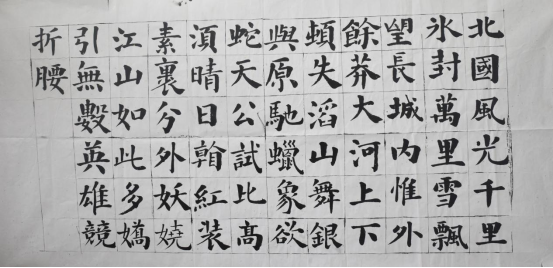 北國風光千里
氷封萬里雪飄
望長城内惟外
餘莽大河上下
頓失滔山舞銀
與原馳蠟象欲
蛇天公試比髙
湏晴日翰紅裝
素裹分外妖嬈
江山如此多嬌
引無數英雄競
折腰